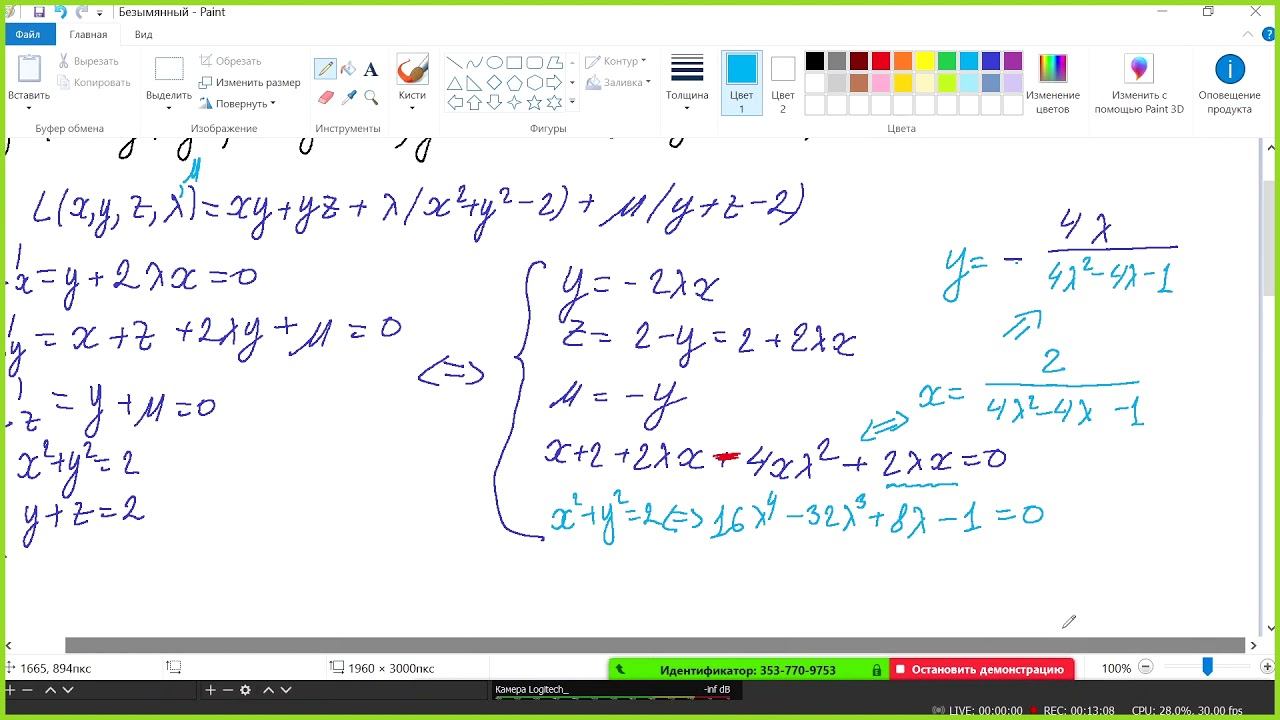 Безымянный - Paint
Файл Главная Вид
Вставить
Вырезать
Копировать
Буфер обмена
Выделить
Обрезать
Изменить размер
Повернуть
Изображение
A
Инструменты
Кисти
Контур
Заливка
Фигуры
Толщина
Цвет 1
Цвет 2
Цвета
Изменение цветов
Изменить с помощью Paint 3D
Оповещение продукта
L(x,y,z,λ,μ)=xy+yz+λ(x²+y²-2)+μ(y+z-2)
'x=y+2λx=0
'y=x+z+2λy+μ=0
'z=y+μ=0
x²+y²=2
y+z=2
<=>
y=-2λx
z=2-y=2+2λx
μ=-y
x+2+2λx-4xλ²+2λx=0
x²+y²=2<=>16λ⁴-32λ³+8λ-1=0
<=>
x=2/(4λ²-4λ-1)
=>
y=-4λ/(4λ²-4λ-1)
1665, 894пкс
1960 × 3000пкс
Идентификатор: 353-770-9753
Остановить демонстрацию
100%
Камера Logitech_ -inf dB
LIVE: 00:00:00 REC: 00:13:08 CPU: 28.0%, 30.00 fps